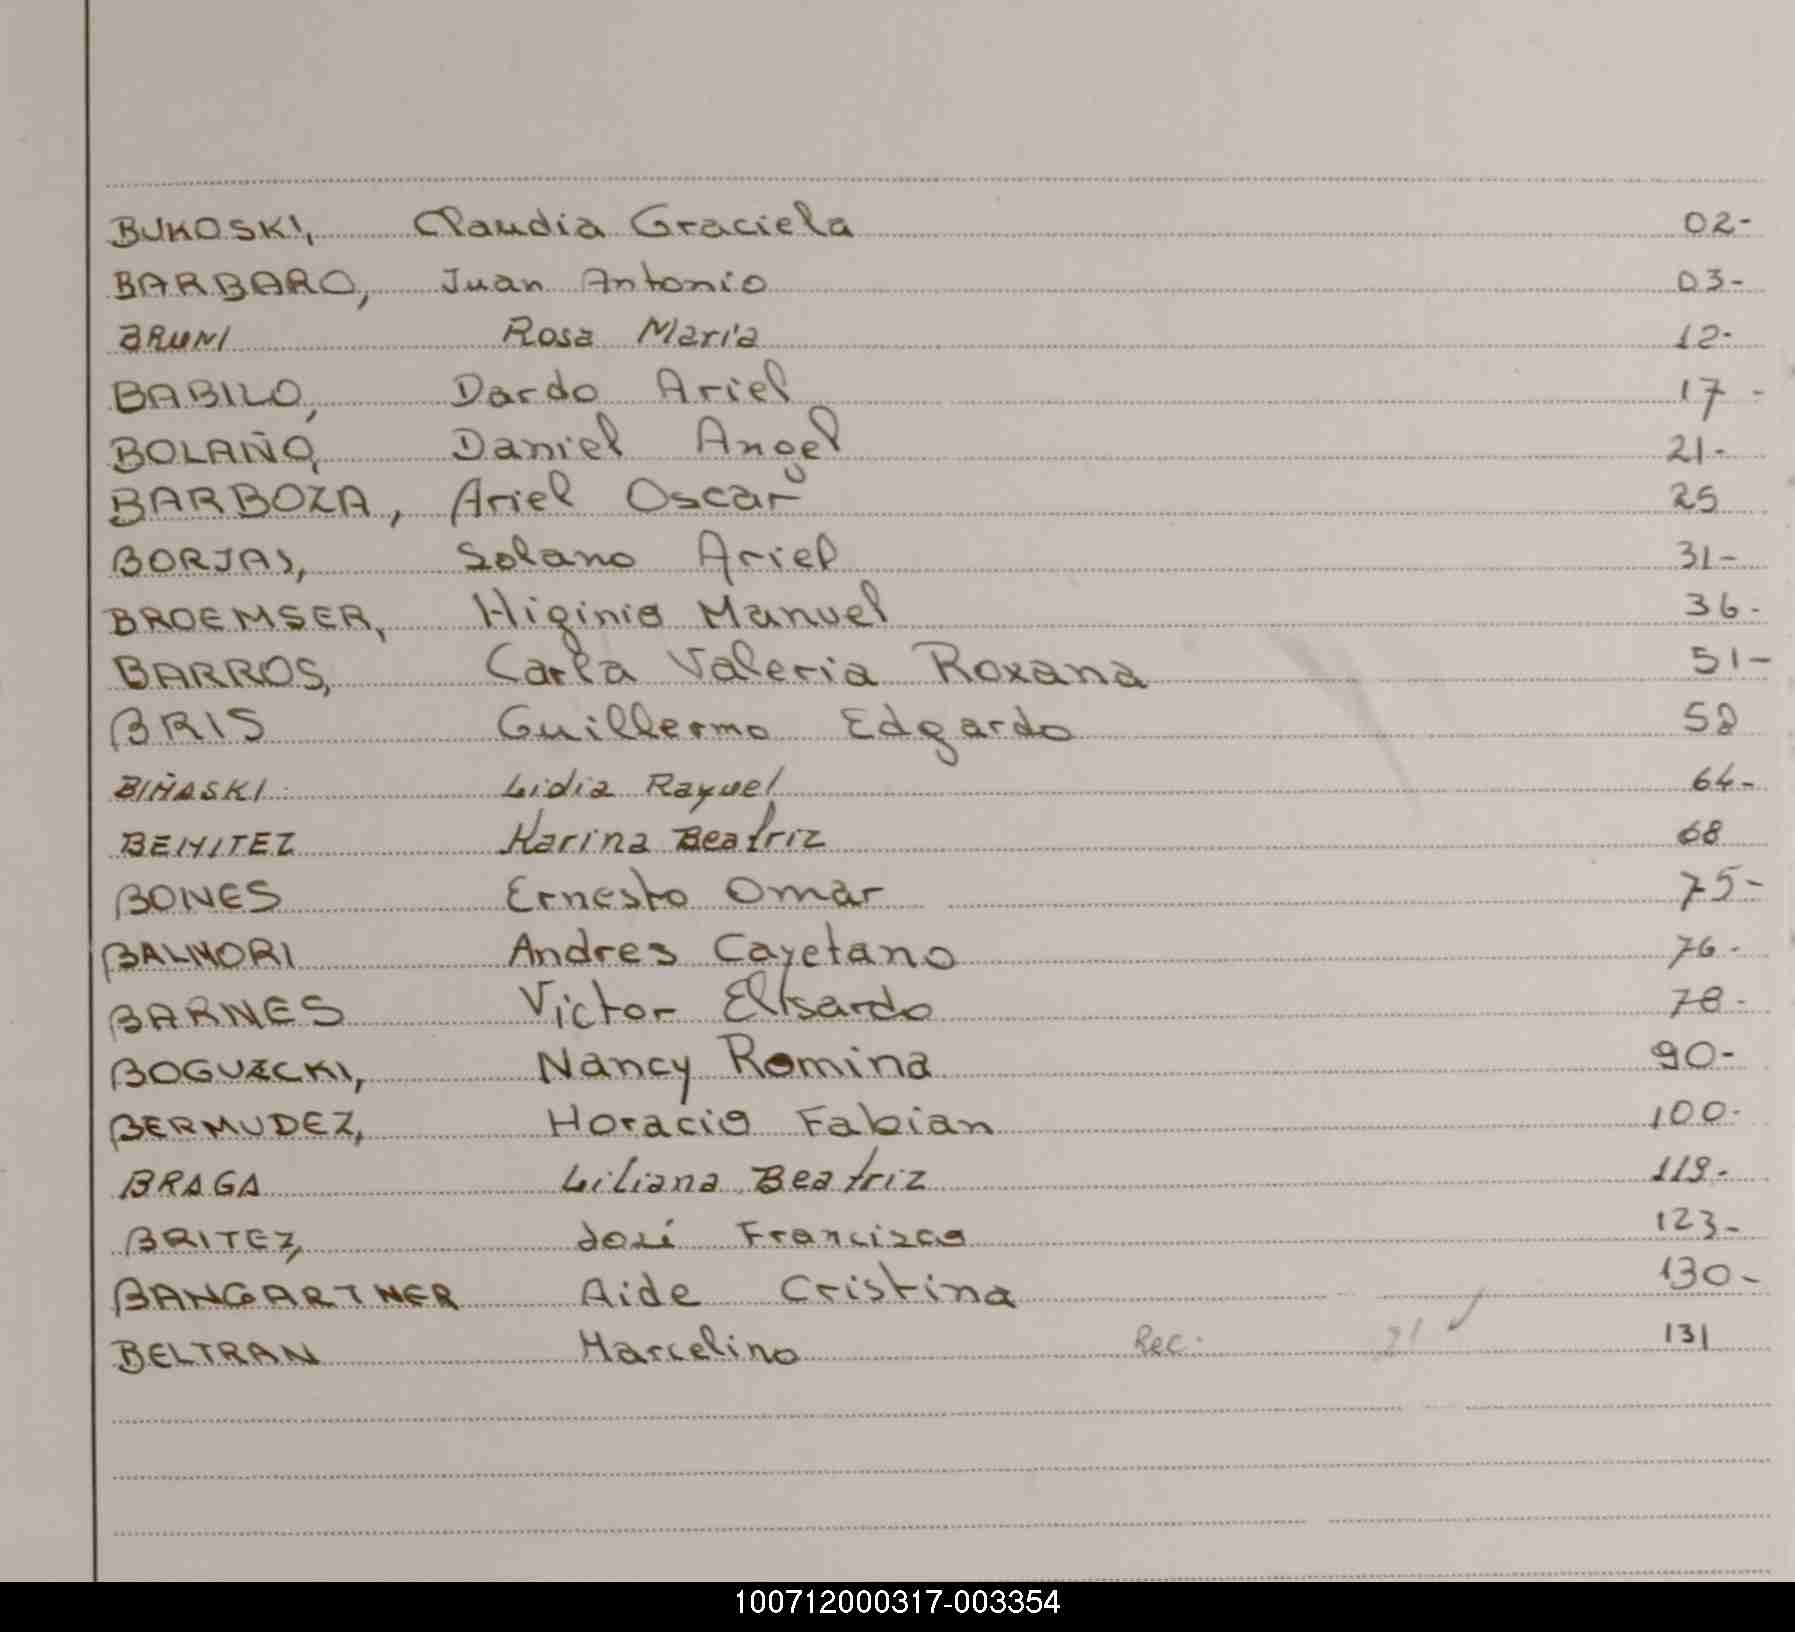 BUKOSKI, Claudia Graciela 02-
BARBARO, Juan Antonio 03-
BRUNI Rosa Maria 12-
BABILO, Dardo Ariel 17-
BOLAÑO, Daniel Angel 21-
BARBOZA, Ariel Oscar 25
BORJAS, Solano Ariel 31-
BROEMSER, Higinio Manuel 36-
BARROS, Carla Valeria Roxana 51-
BRIS Guillermo Edgardo 58
BIÑASKI Lidia Raquel 64-
BENITEZ Karina Beatriz 68
BONES Ernesto Omar 75-
BALMORI Andres Cayetano 76-
BARNES Victor Elisardo 78-
BOGUZCKI, Nancy Romina 90-
BERMUDEZ, Horacio Fabian 100-
BRAGA Liliana Beatriz 119-
BRITEZ, José Francisco 123-
BANGARTNER Aide Cristina 130-
BELTRAN Marcelino Rec. 131
100712000317-003354